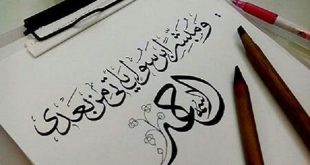 ومبشرا برسول يأتي من بعدي
اسمه أحمد